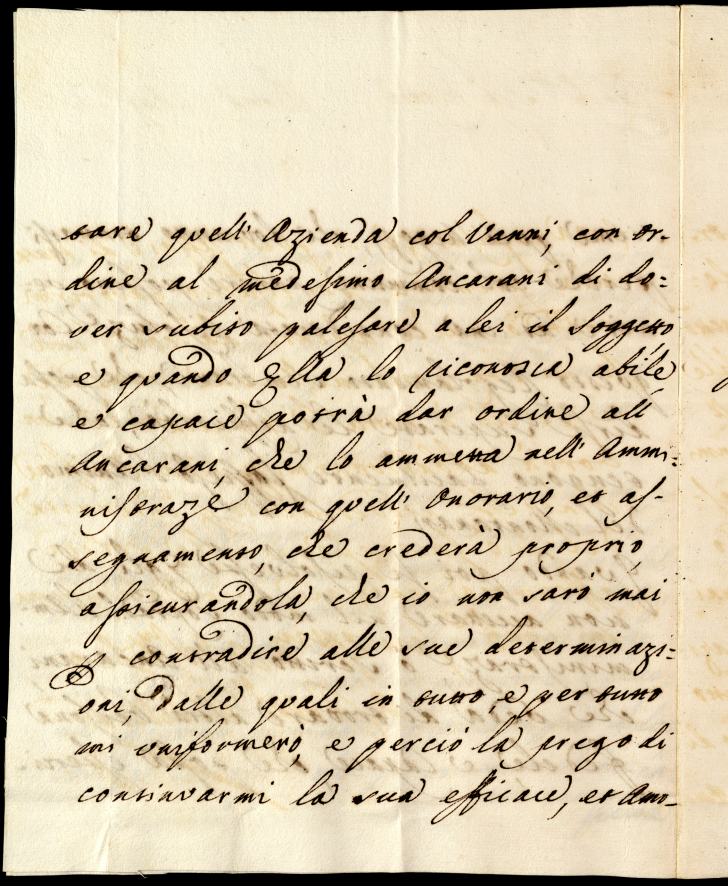 tare quell' Azienda col Vanni, con or-
dine al medesimo Ancarani di do=
ver subito palesare a lei il Soggetto
e quando Ella lo riconosca abile
e capace potrà dar ordine all'
Ancarani, che lo ammetta nell' Ammi=
nistraze con quell' Onorario, et as-
segnamento, che crederà proprio,
assicurandola, che io non sarò mai
p contradire alle sue determinazi=
oni, dalle quali in tutto, e per tutto
mi uniformerò, e perciò la prego di
continuarmi la sua efficace, et Amo-